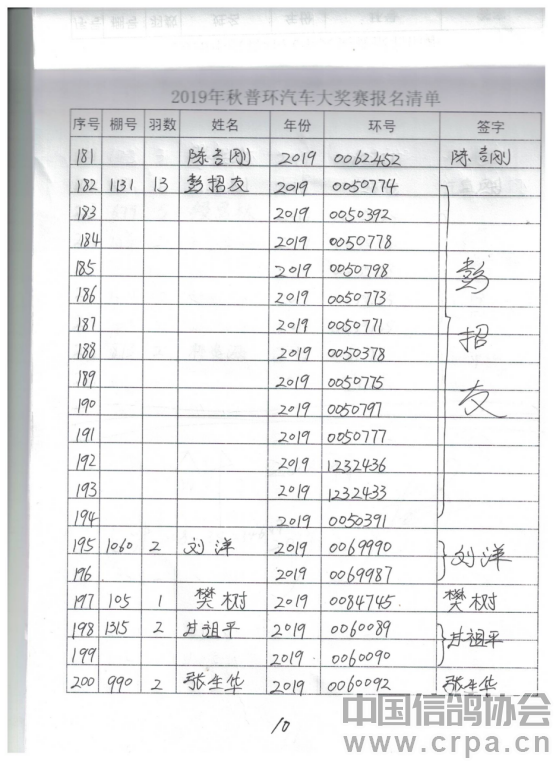 2019年秋普环汽车大奖赛报名清单
序号 棚号 羽数 姓名 年份 环号 签字
181 陈吉刚 2019 0062452 陈吉刚
182 1131 13 彭招友 2019 0050774
183 2019 0050392
184 2019 0050778
185 2019 0050798
186 2019 0050773
187 2019 0050771
188 2019 0050378
189 2019 0050775
190 2019 0050797
191 2019 0050777
192 2019 1232436
193 2019 1232433
194 2019 0050391
彭招友
195 1060 2 刘洋 2019 0069990 刘洋
196 2019 0069987
197 105 1 樊树 2019 0084745 樊树
198 1315 2 甘祖平 2019 0060089 甘祖平
199 2019 0060090
200 990 2 张生华 2019 0060092 张生华
10
中国信鸽协会
www.crpa.cn